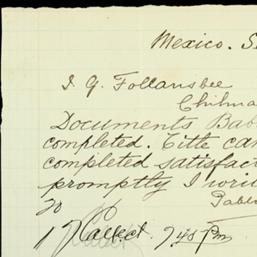 Mexico. S
I. G. Follansbee
Chihua
Documents Bab
completed. Title can
completed satisfact
promptly I wri
Pablo
20
17 Collect. 7 45 Pm